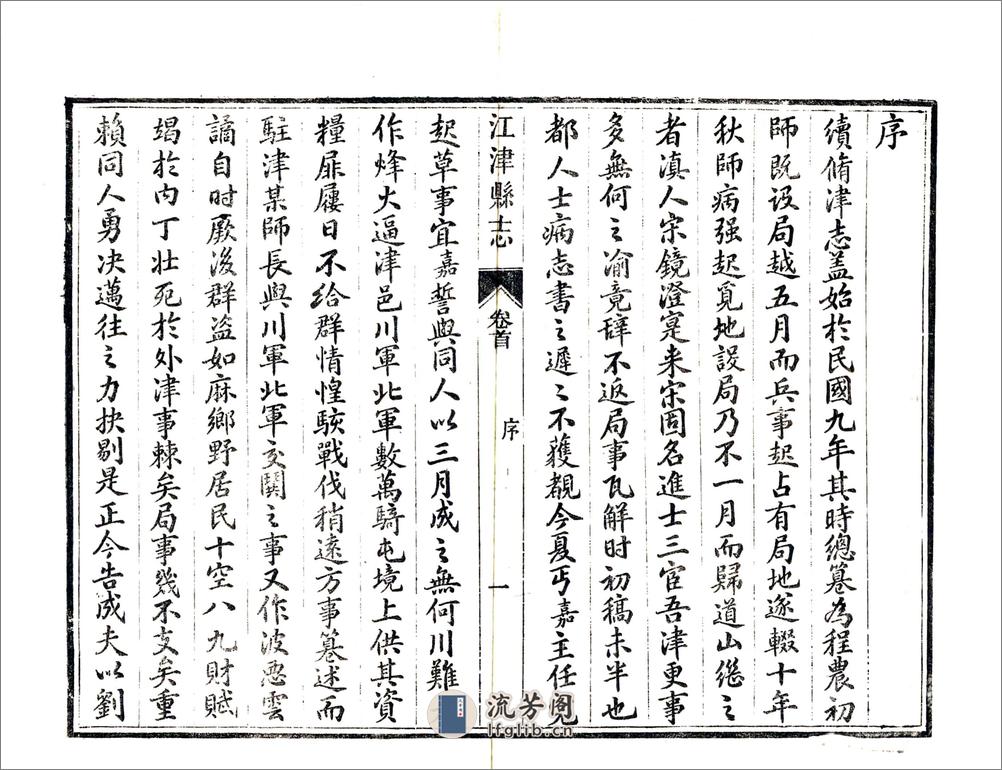 序
續脩津志蓋始於民國九年其時總纂為程農初
師既设局越五月而兵事起占有局地遂輟十年
秋師病强起覓地設局乃不一月而歸道山继之
者滇人宋鏡澄寔来宋固名進士三宦吾津更事
多無何之渝竟辞不返局事瓦解时初稿未半也
都人士病志書之遲之不獲覩今夏丐嘉主任
江津縣志
卷首
序
一
起草事宜嘉誓與同人以三月成之無何川難
作烽火逼津邑川軍北軍數萬騎屯境上供其資
糧屝屨日不给群情惶駭戰伐稍遠方事纂述而
駐津某師長與川軍北軍交鬨之事又作波悪雲
譎自时厥後群盗如麻鄉野居民十空八九財賦
竭於内丁壮死於外津事棘矣局事幾不支矣重
賴同人勇决邁往之力抉剔是正今告成夫以劉
流芳阁
lfglib.cn